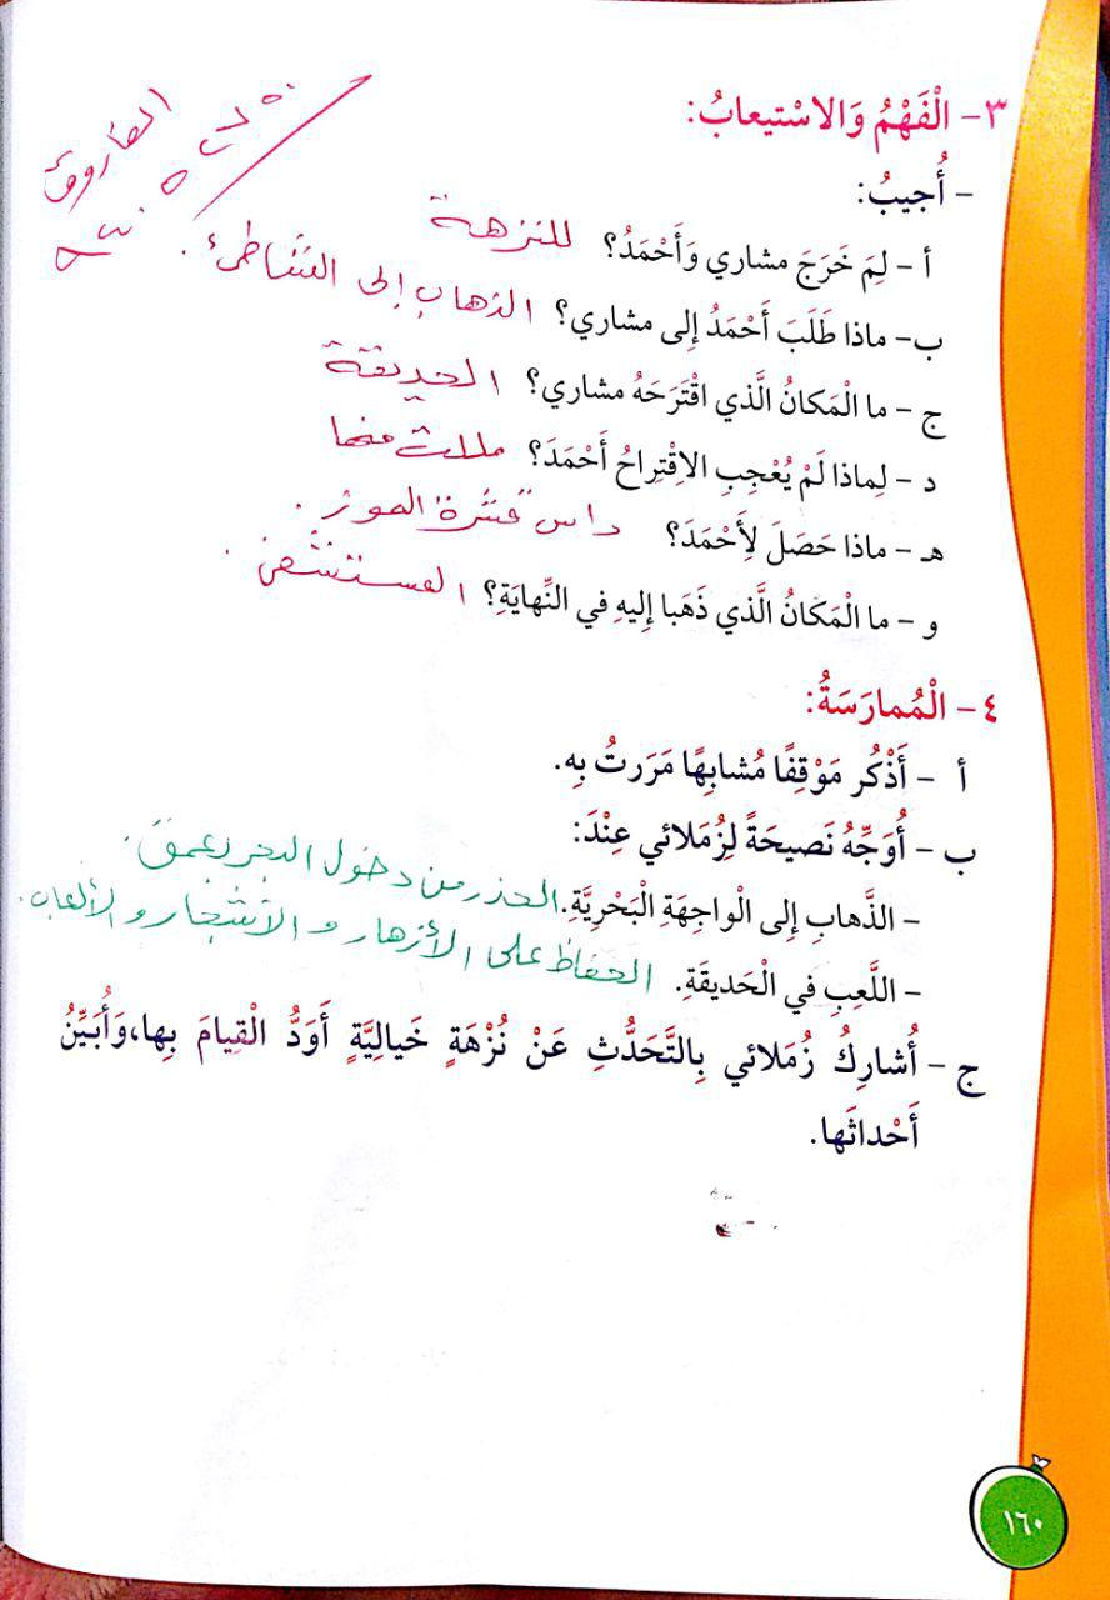 ٣- الْفَهْمُ وَالاسْتيعابُ:
- أُجيبُ:
أ - لِمَ خَرَجَ مشاري وَأَحْمَدُ؟ للنزهة
ب- ماذا طَلَبَ أَحْمَدُ إِلى مشاري؟ الذهاب إلى الشاطئ.
ج - ما الْمَكانُ الَّذي اقْتَرَحَهُ مشاري؟ الحديقة
د - لِماذا لَمْ يُعْجِبِ الاِقْتِراحُ أَحْمَدَ؟ مللت منها
هـ - ماذا حَصَلَ لِأَحْمَدَ؟ داس قشرة الموز.
و - ما الْمَكانُ الَّذي ذَهَبا إِليهِ في النِّهايَةِ؟ المستشفى.
٤- الْمُمارَسَةُ:
أ - أَذْكُر مَوْقِفًا مُشابِهًا مَرَرتُ بِه.
ب - أُوَجِّهُ نَصيحَةً لِزُمَلائي عِنْدَ:
- الذَّهابِ إِلى الْواجِهَةِ الْبَحْرِيَّةِ. الحذر من دخول البحر بعمق.
- اللَّعِبِ في الْحَديقَةِ. الحفاظ على الأزهار و الأشجار و الألعاب.
ج - أُشارِكُ زُمَلائي بِالتَّحَدُّثِ عَنْ نُزْهَةٍ خَيالِيَّةٍ أَوَدُّ الْقِيامَ بِها،وَأُبَيِّنُ
أَحْداثَها.
١٦٠